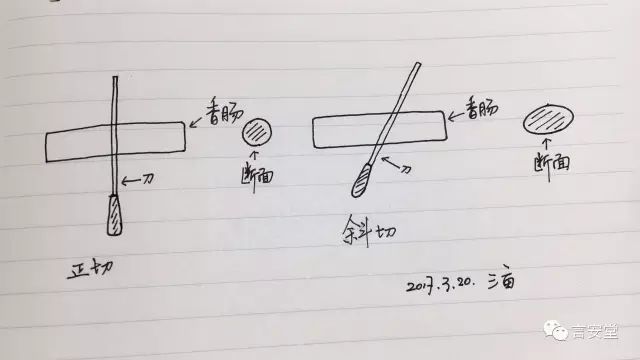 香肠
刀
断面
正切
香肠
刀
断面
斜切
2017.3.20. 三亩
言安堂